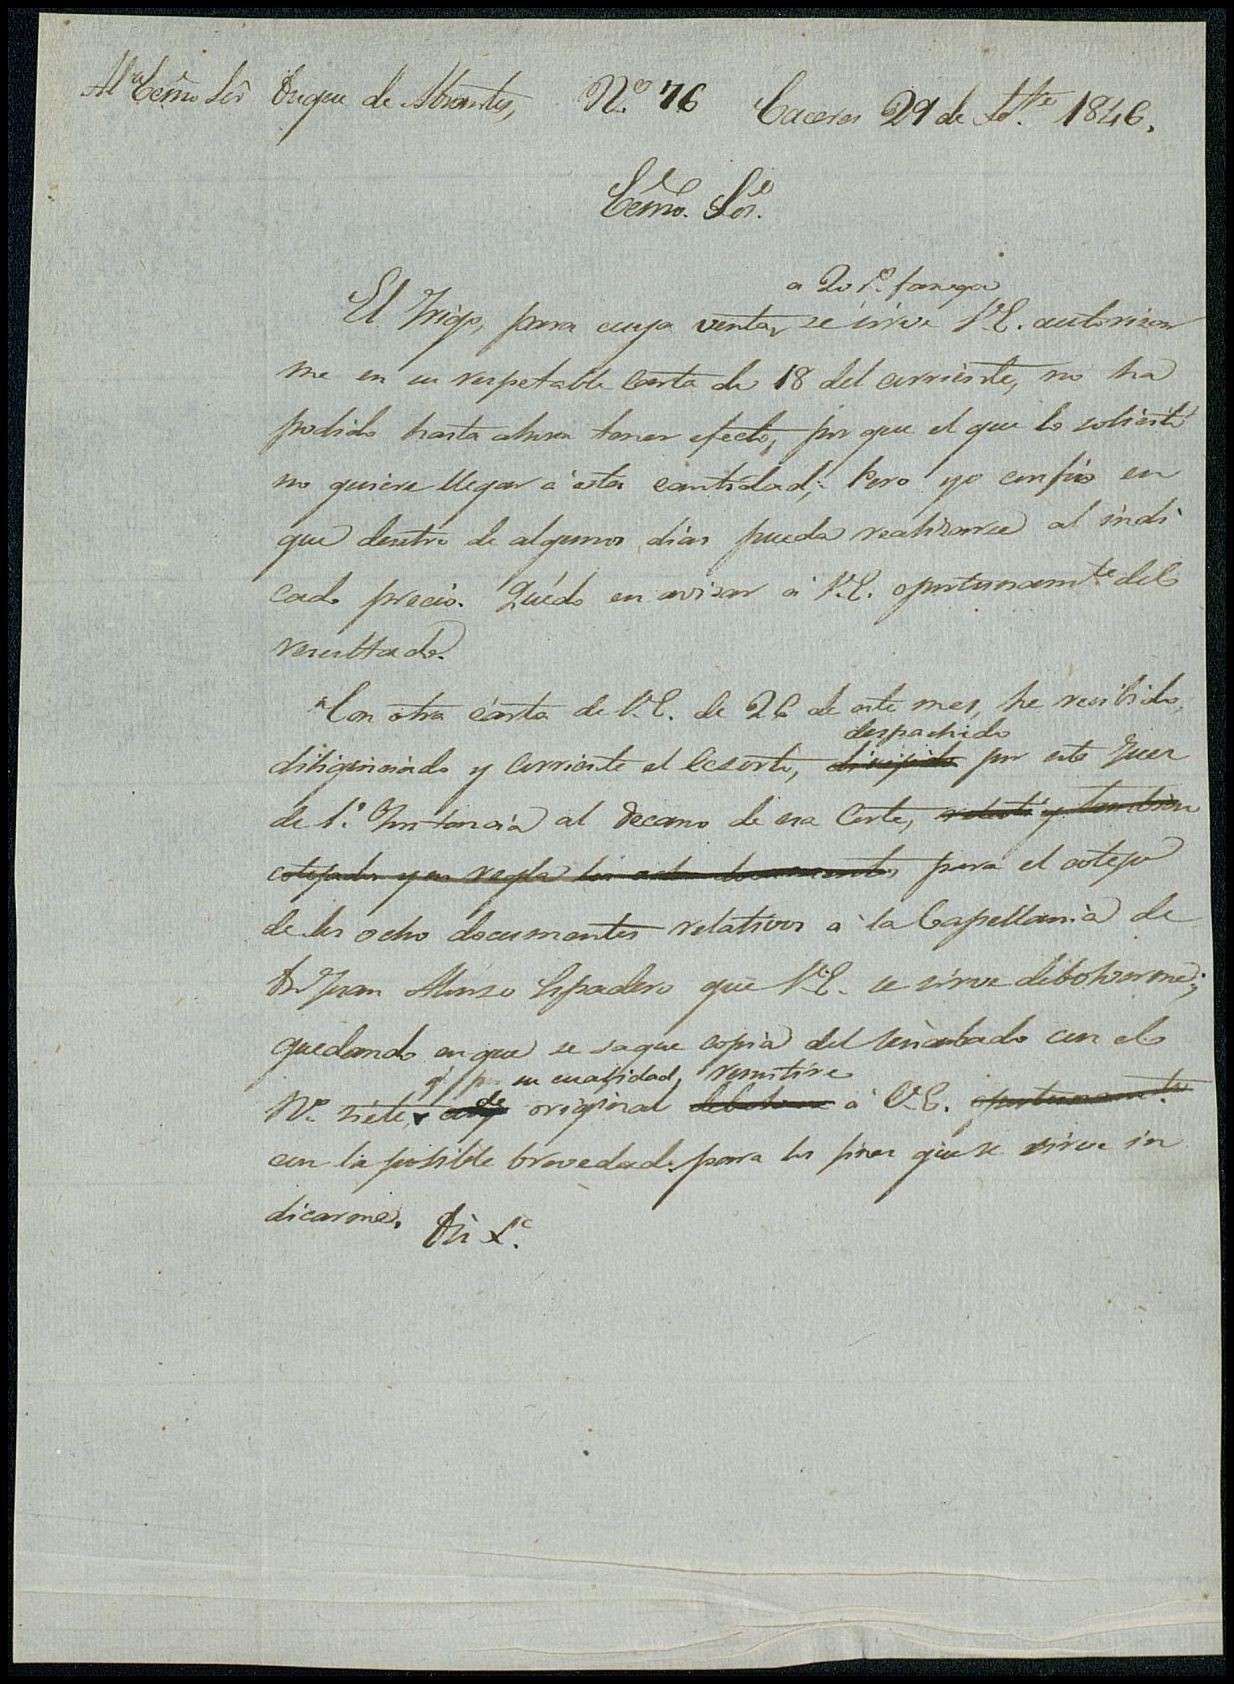 Al Ecmo Sor Duque de Abrantes, N.º 76 Caceres 29 de Stbre 1846.
Ecmo. Sor.
a 20 rs. fanega
El Trigo, para cuya venta, se sirve V.E. autorizar
me en su respetable carta de 18 del corriente, no ha
podido hasta ahora tener efecto, por que el que lo solicita
no quiere llegar á esta cantidad; Pero yo confio en
que dentro de algunos dias pueda realizarse al indi
cado precio. Quédo en avisar á V.E. oportunamte del
resultado.
Con otra carta de V.E. de 26 de este mes, he recibido,
despachido
diligenciado y corriente el Ecsorto, dirigido por este Juez
de 1.ª Instancia al Decano de esa Corte, y tambien
cotejados y en regla los ocho documentos para el cotejo
de los ocho documentos relativos á la Capellania de
Dn Juan Alonso Espadero que V.E. se sirve debolverme;
quedando en que se saque copia del señalado con el
qe por su cualidad, remitire
Nº siete, de original á V.E. oportunamte
con la posible brevedad para los fines que se sirve in
dicarme.